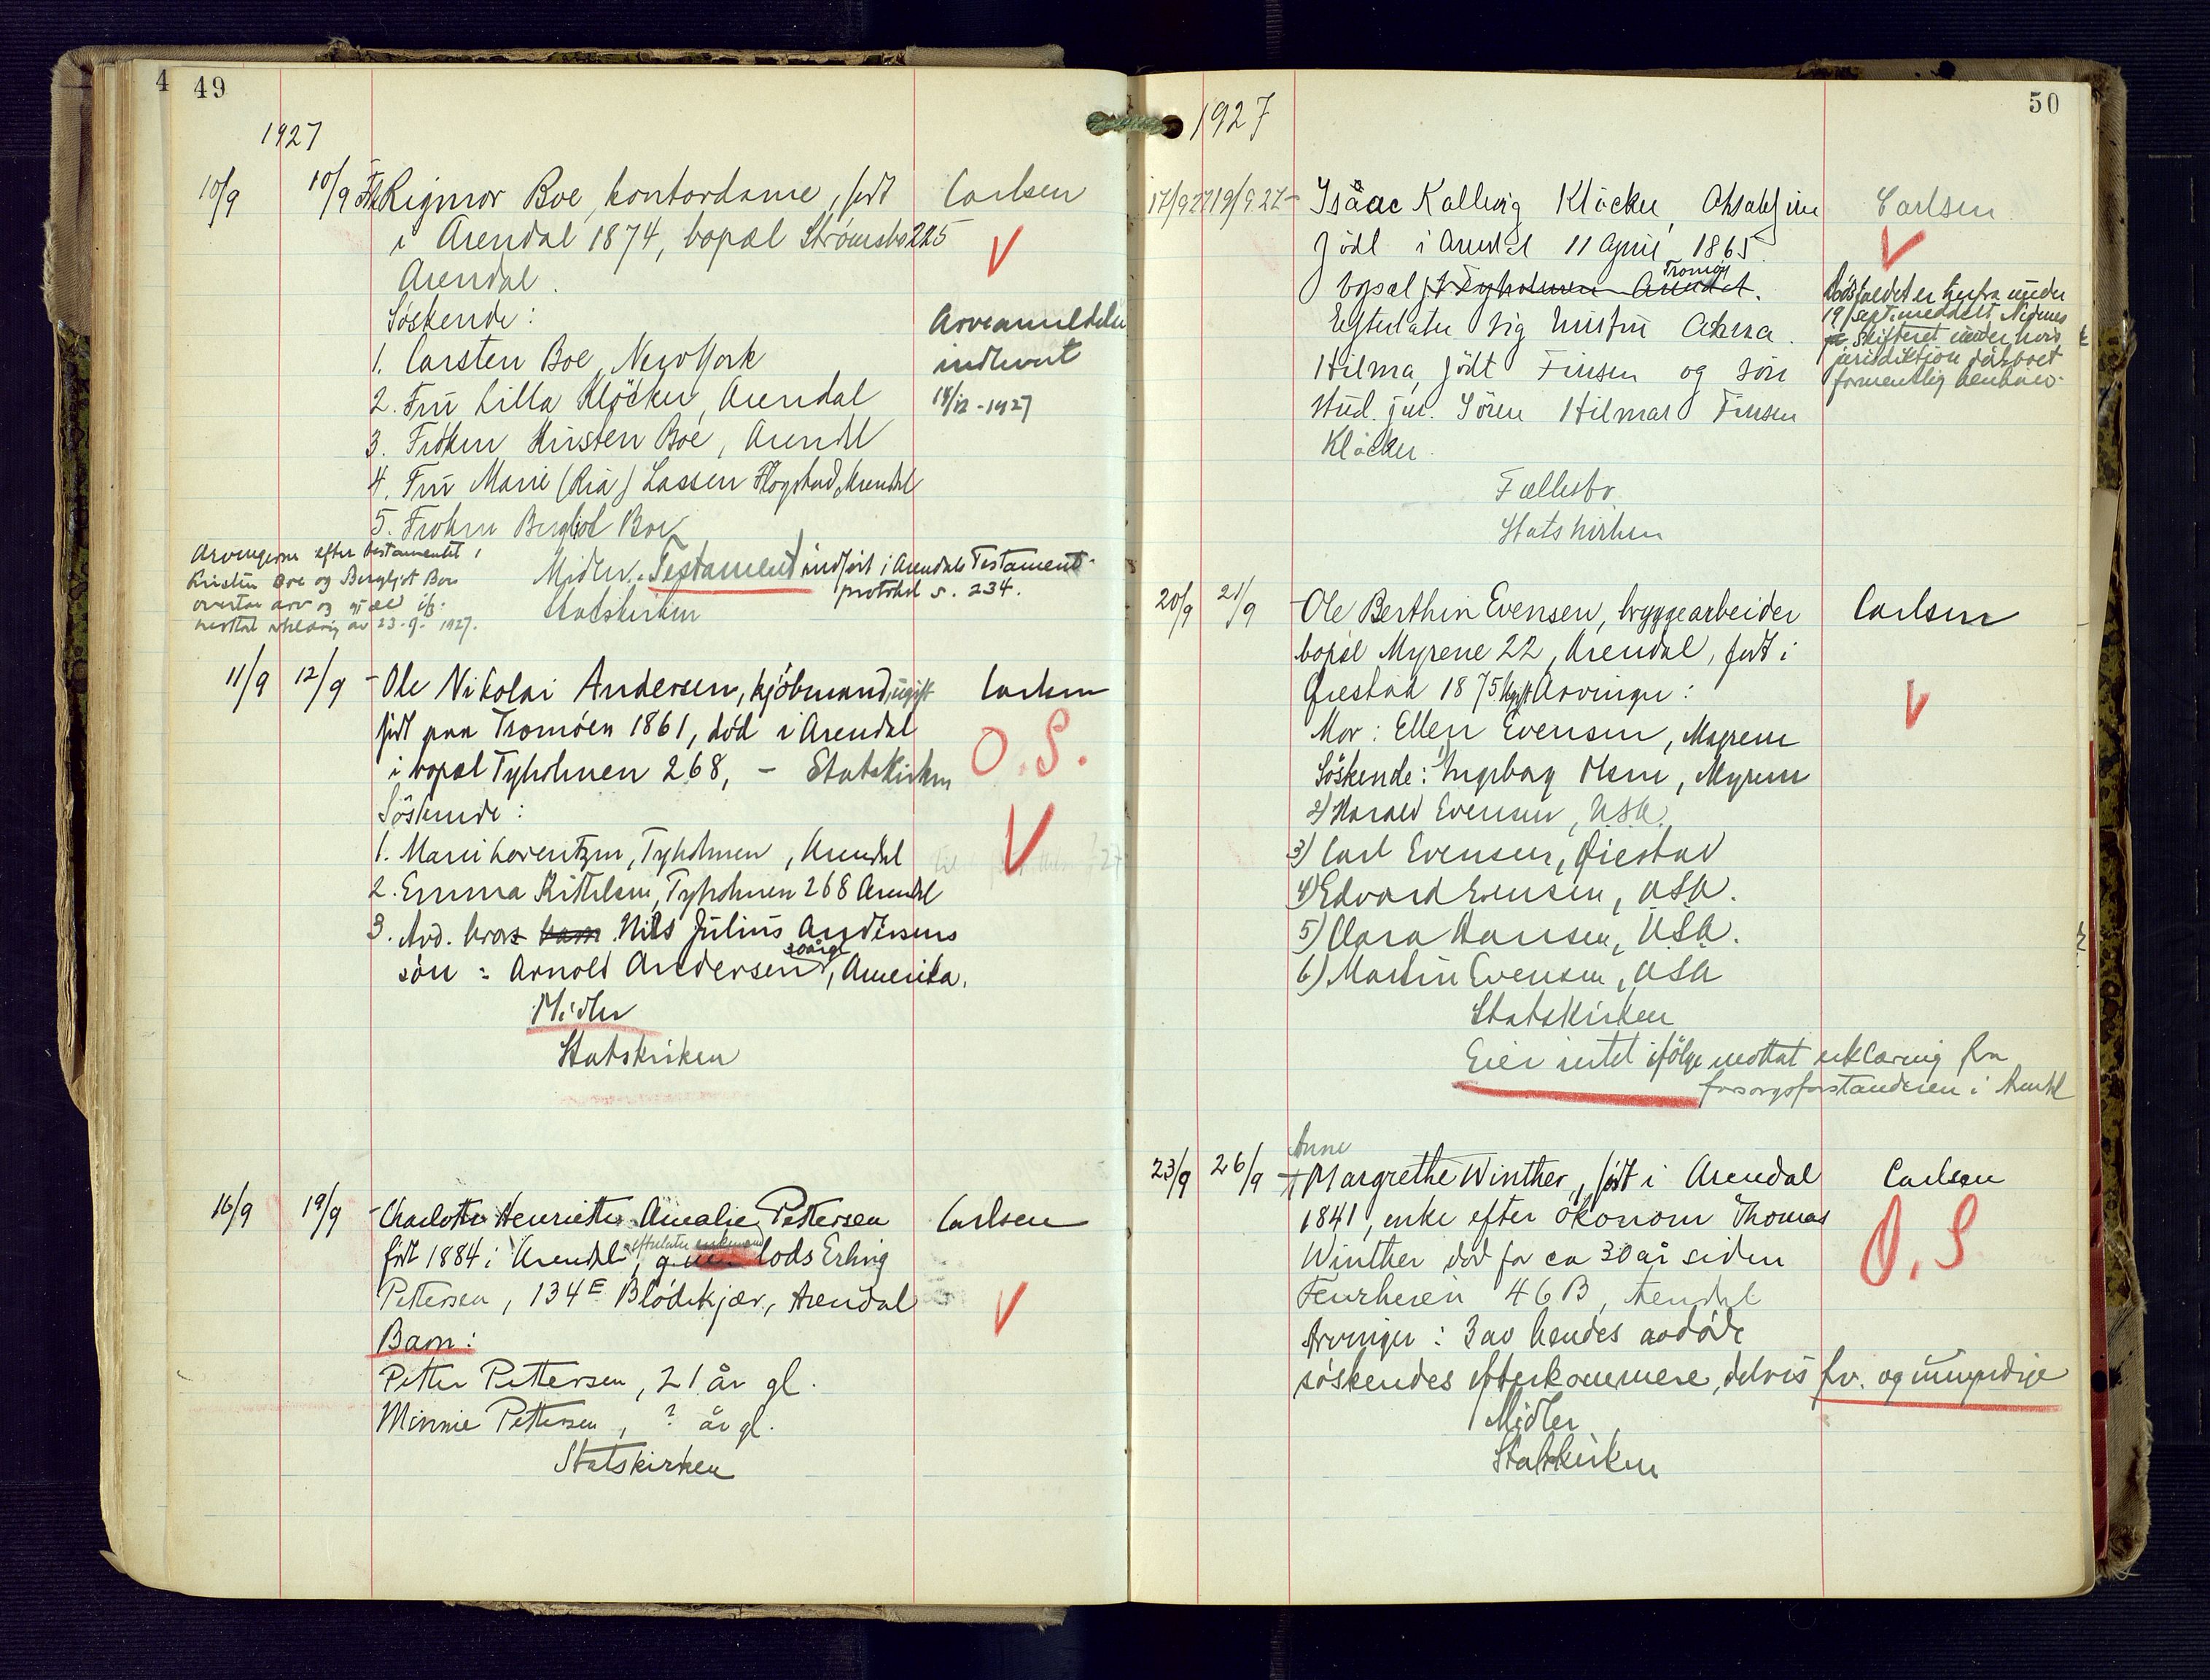 4 49
1927
10/9 10/9 Frk Rigmor Boe, kontordame, født Carlsen
i Arendal 1874, bopæl Strømsbo 225
Arendal.
Søskende:
1. Carsten Boe, New York
2. Fru Lilla Kløcker, Arendal
3. Frøken Kirsten Boe, Arendal
4. Fru Marie (Ria) Lassen Høgstad, Arendal
5. Frøken Bergljot Boe
Arveanmeldelse
indlevert
18/12-1927
Midler. Testament indført i Arendals Testament-
protokol s. 234.
Statskirken
Arvingerne efter testamentet,
Kirsten Boe og Bergljot Boe
overtar arv og gjæld if.
mottat erklæring av 23-9-1927.
11/9 12/9 - Ole Nikolai Andersen, kjøbmand, ugift Carlsen
født paa Tromøen 1861, død i Arendal
i bopæl Tyholmen 268, - Statskirken
O.S.
Søskende:
1. Marie Lorentzen, Tyholmen, Arendal
2. Emma Kittelsen, Tyholmen 268 Arendal
3. Avd. brors Nils Julius Andersens
søn: Arnold Andersen 30 år gl, Amerika.
Midler
Statskirken
16/9 19/9 - Charlotte Henriette Amalie Pettersen Carlsen
født 1884 i Arendal, efterlater enkemand lods Erling
Pettersen, 134E Blødekjær, Arendal
Barn:
Petter Pettersen, 21 år gl.
Minnie Pettersen, ? år gl.
Statskirken
50
1927
17/9 27 19/9 27 - Isaac Kallevig Kløcker, Carlsen
født i Arendal 11 April 1865.
bopæl Tyholmen Arendal. Tromøy
Efterlater sig hustru Anna
Hilma, født Finsen og søn
stud. jur. Sören Hilmar Finsen
Kløcker.
Fællesbo
Statskirken
Dødsfaldet er herfra under
19/sept. meddelt Nedenes
skifteret under hvis
jurisdiktion dødsboet
formentlig henhører.
20/9 21/9 - Ole Berthin Evensen, bryggearbeider Carlsen
bopæl Myrene 22, Arendal, født i
Øiestad 1875 Ugift Arvinger:
Mor: Ellen Evensen, Myrene
Søskende: Ingeborg Olsen, Myrene
2) Harald Evensen, USA.
3) Carl Evensen, Øiestad
4) Edvard Evensen, USA.
5) Clara Hansen, USA.
6) Martin Evensen, USA
Statskirken
Eier intet ifølge mottat erklæring fra
forsorgsforstanderen i Arendal
23/9 26/9 - Anne
Margrethe Winther, født i Arendal Carlsen
1841, enke efter økonom Thomas
Winther død for ca 30 år siden
46B, Arendal
O.S
Arvinger: 3 av hendes avdøde
søskendes efterkommere, delvis frv. og umyndige
Midler
Statskirken